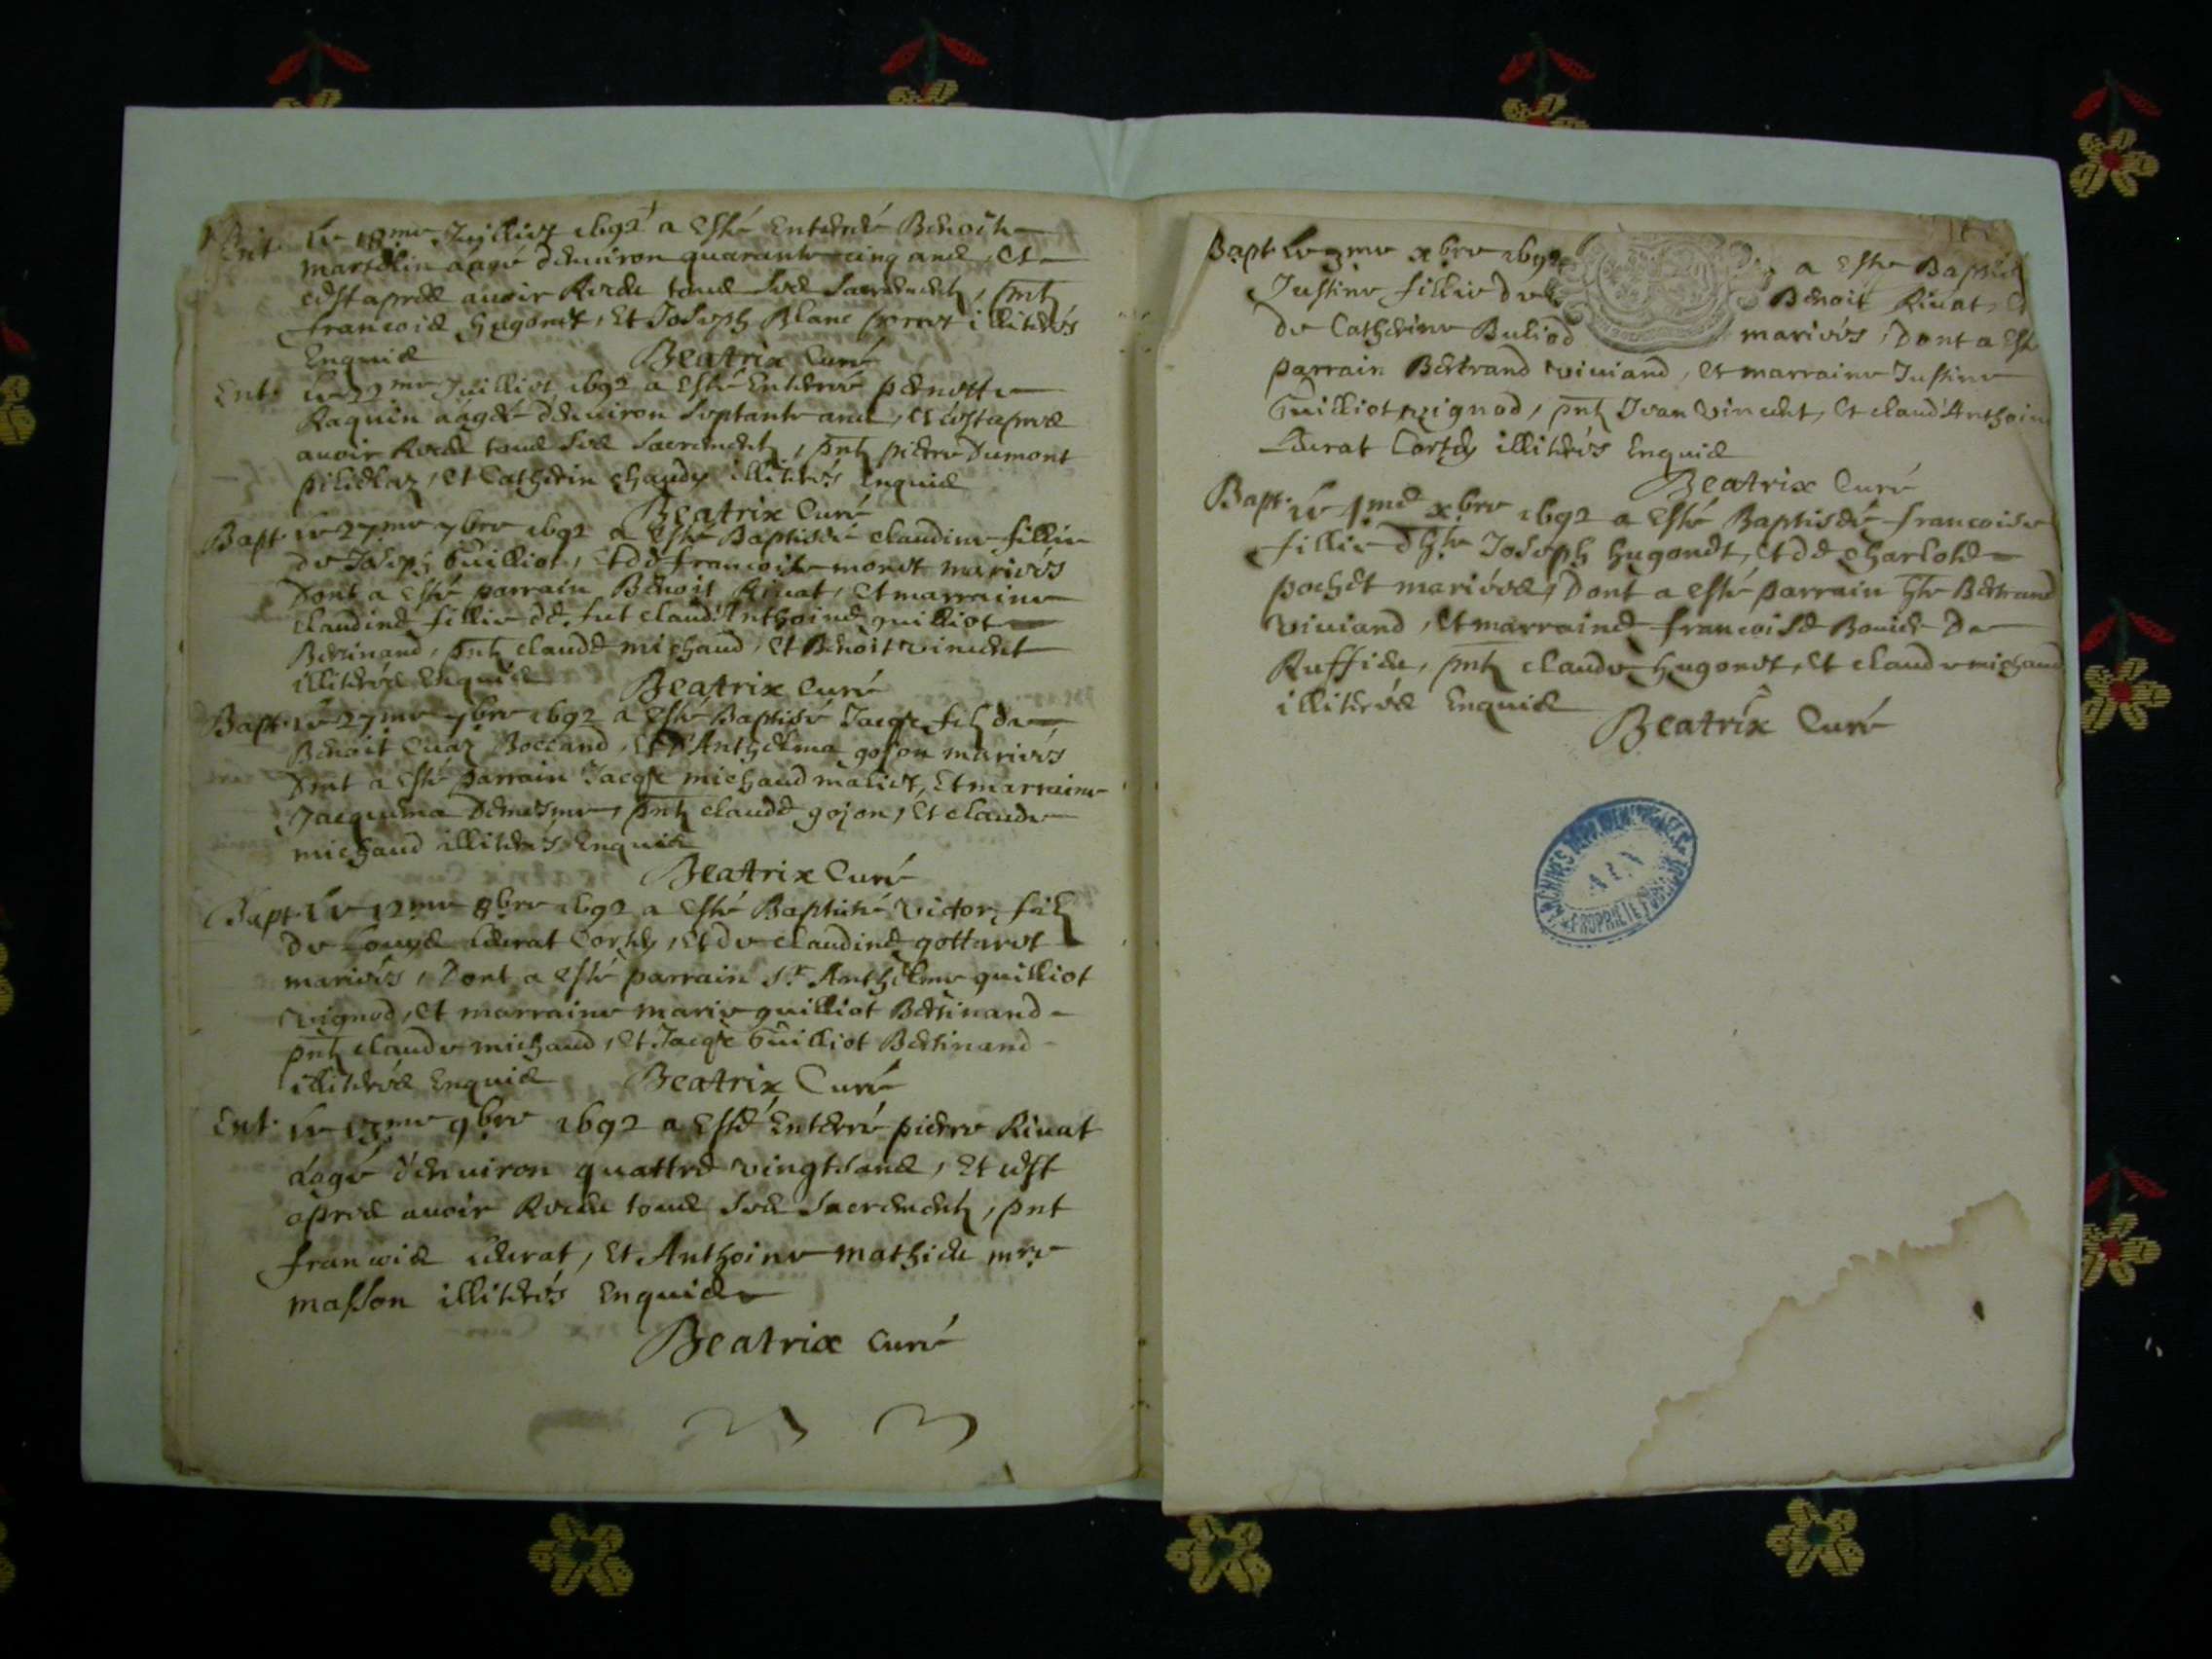 Ent. Le 18me Juilliet 1692 a esté Enterré Benoite
marcelin aagé denviron quarante cinq ans, Et
cest apres avoir Receu tous ses sacrements, pnts
francois hugonet, Et Joseph Blanc illiterés
Enquis Beatrix Curé
Ent. Le 29me Juilliet 1692 a esté Enterré pernette
Raquin aagée denviron septante ans, Et cest apres
avoir Receu tous ses sacrements, pnts pierre Dumont
Et Catherin illiterés Enquis
Beatrix Curé
Bapt. Le 27me 7bre 1692 a esté Baptisée claudine fillie
de Joseph Guilliot, Et de francoise moret mariés
Dont a esté parrain Benoit Rivat, Et marraine
claudine fillie de fut claud Anthoine guilliot
Bertinand, pnts claude michaud, Et Benoit vincent
illiterés Enquis Beatrix Curé
Bapt. Le 27me 7bre 1692 a esté Baptisé Jacqe fils de
Benoit Cuaz Boccand, Et d'Anthelma gojon mariés
Dont a esté parrain Jacqe michaud maliet, Et marraine
Jacquema pnts claude gojon, Et claude
michaud illiterés Enquis
Beatrix Curé
Bapt. Le 12me 8bre 1692 a esté Baptisé victor, fils
de Louys Cerat Et de claudine gottaret
mariés, Dont a esté parrain Sr. Anthelme guilliot
vignod, Et marraine marie guilliot Bertinand
pnts claude michaud, Et Jacqe Guilliot Bertinand
illiterés Enquis Beatrix Curé
Ent. Le 13me 9bre 1692 a esté Enterré pierre Rivat
aagé denviron quattre vingts ans, Et cest
apres avoir Receu tous ses sacrements, pnt
francois Cerat, Et Anthoine mathieu mre
masson illiterés Enquis
Beatrix Curé
Bapt. Le 3me xbre 1692 a esté Baptisé
Justine fillie de Benoit Rivat, Et
de Catherine Buliod mariés, Dont a esté
parrain Bertrand viviand, Et marraine Justine
Guilliot vignod, pnts Jean vincent, Et claud Anthoine
Cerat illiterés Enquis
Beatrix Curé
Bapt. Le 4me xbre 1692 a esté Baptisée francoise
fillie d hte Joseph hugonet, Et de charlote
pochet mariés, Dont a esté parrain hte Bertrand
viviand, Et marraine francoise Bovier De
Ruffieu, pnts claude hugonet, Et claude michaud
illiterés Enquis
Beatrix Curé
ARCHIVES DEPARTEMENTALES
AIN
PROPRIETE PUBLIQUE